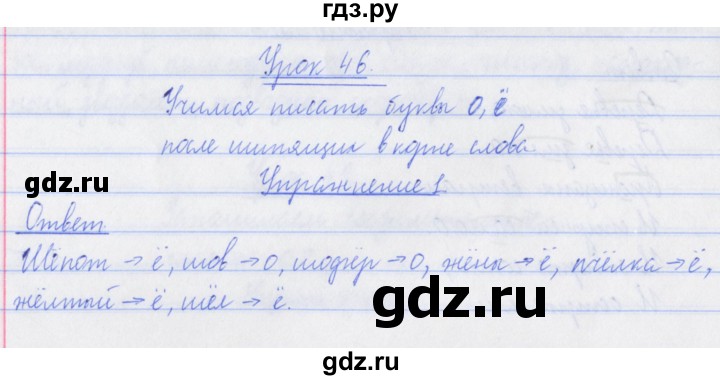 гдз.ру
Урок 46.
Учимся писать буквы о, ё
после шипящих в корне слова.
gdz.ru
Упражнение 1
Ответ
Шёпот → ё, шов → о, шофёр → о, жёны → ё, пчёлка → ё,
жёлтый → ё, шёл → ё.
gdz.ru
gdz.ru